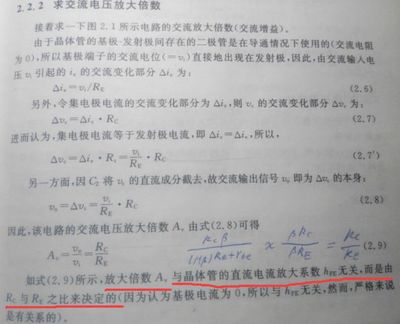 2.2.2 求交流电压放大倍数
接着求一下图 2.1 所示电路的交流放大倍数(交流增益)。
由于晶体管的基极-发射极间存在的二极管是在导通情况下使用的(交流电阻
为 0),所以基极端子的交流电位(=vi)直接地出现在发射极,因此,由交流输入电
压 vi 引起的 ie 的交流变化部分 Δie 为:
Δie = vi/RE (2.6)
另外,令集电极电流的交流变化部分为 Δic,则 vc 的交流变化部分 Δvc 为:
Δvc = Δic · RC (2.7)
进而认为,集电极电流等于发射极电流,即 Δic=Δie,所以,
Δvc = Δie · Rc = vi/RE · RC (2.7′)
另一方面,因 C2 将 vc 的直流成分截去,故交流输出信号 vo 即为 Δvc 的本身:
vo = Δvc = vi/RE · RC (2.8)
因此,该电路的交流电压放大倍数 Av 由式(2.8)可得
Av = vo/vi = RC/RE Rcβ/(1+β)Re+rbe ≈ βRc/βRE = Rc/RE (2.9)
如式(2.9)所示,放大倍数 Av 与晶体管的直流电流放大系数 hFE 无关,而是由
RC 与 RE 之比来决定的(因为认为基极电流为 0,所以与 hFE 无关,然而,严格来说
是有关系的)。